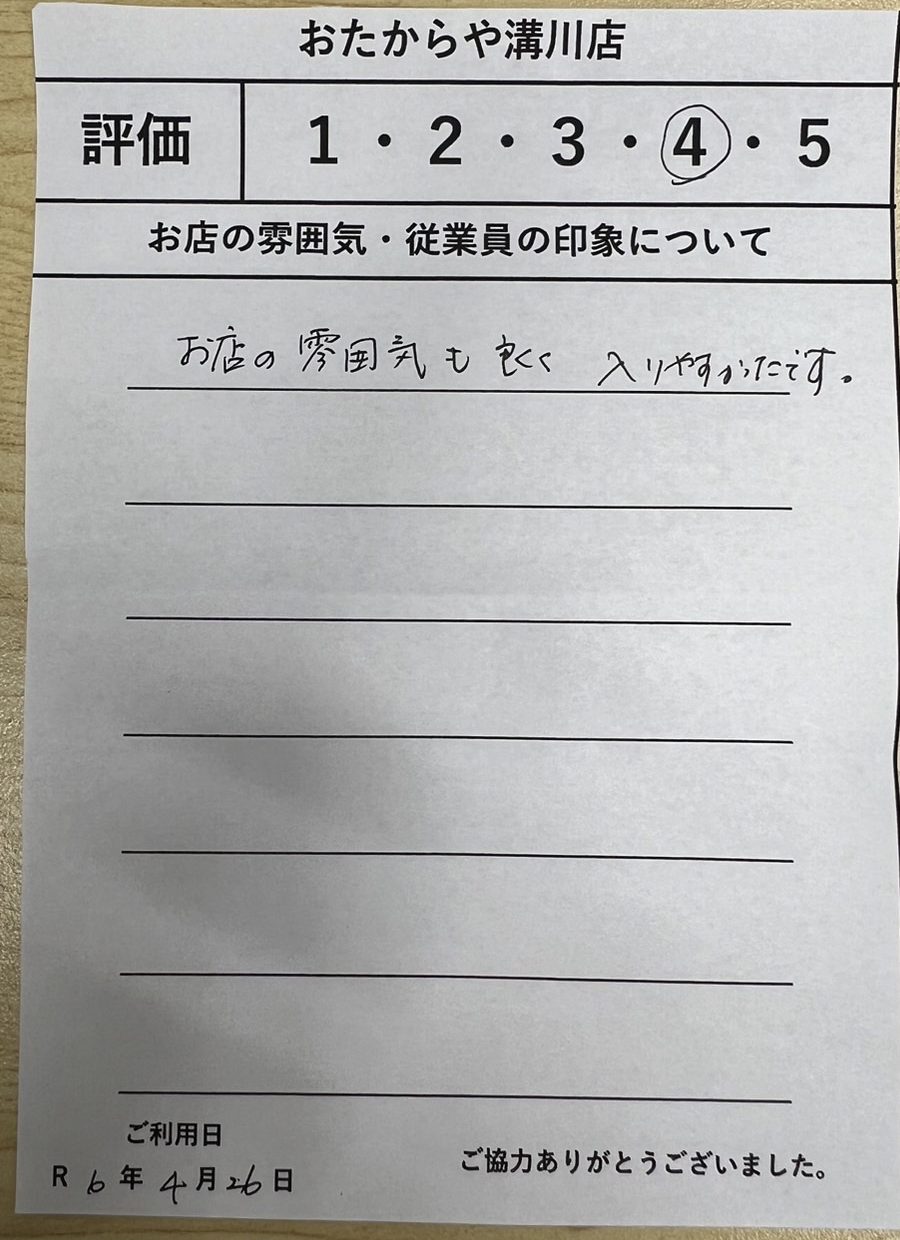 おたからや溝川店
評価 1・2・3・4・5
お店の雰囲気・従業員の印象について
お店の雰囲気も良く 入りやすかったです。
ご利用日
R 6年 4月26日
ご協力ありがとうございました。